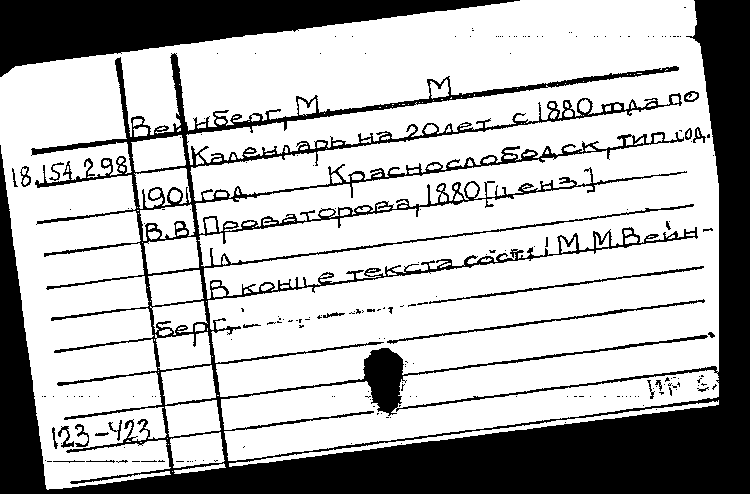 Вейнберг, М. М
18.154.298 Календарь на 20 лет с 1880 года по
1901 год. Краснослободск, тип.
В.В. Проваторова, 1880 [ценз.].
1л.
В конце текста сост.: М.М.Вейн-
берг.
123-423